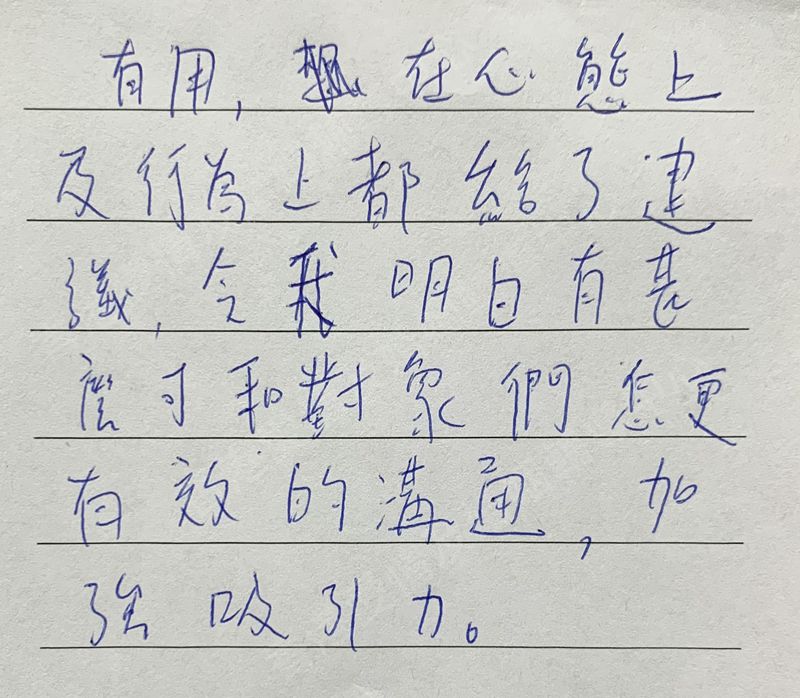 有用,在心態上
及行為上都給了建
議,令我明白有甚
麼可和對象們怎更
有效的溝通,加
強吸引力。